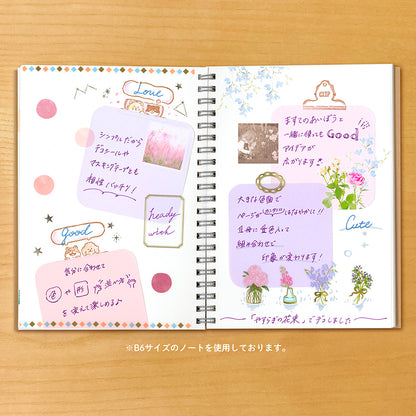 Love
シンプルだから
デコシールや
マスキングテープとも
相性バッチリ!
ready
wish
Good
気分に合わせて
色や形
を変えて楽しめるよ
CLIP
ますてのあいぼうと
一緒に使っても Good
アイデアが
広がります!
大きな台紙で
ページが
立体に
組み合わせて
印象が変わります!
Cute
「やすらぎの花束」でデコしました
※B6サイズのノートを使用しております。